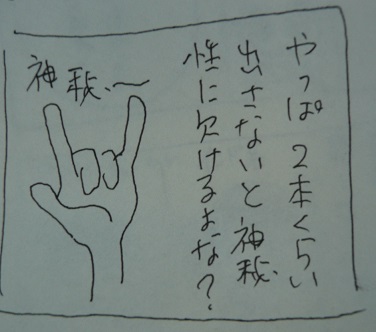 やっぱ2本くらい
出さないと神秘
性に欠けるよな?
神秘〜